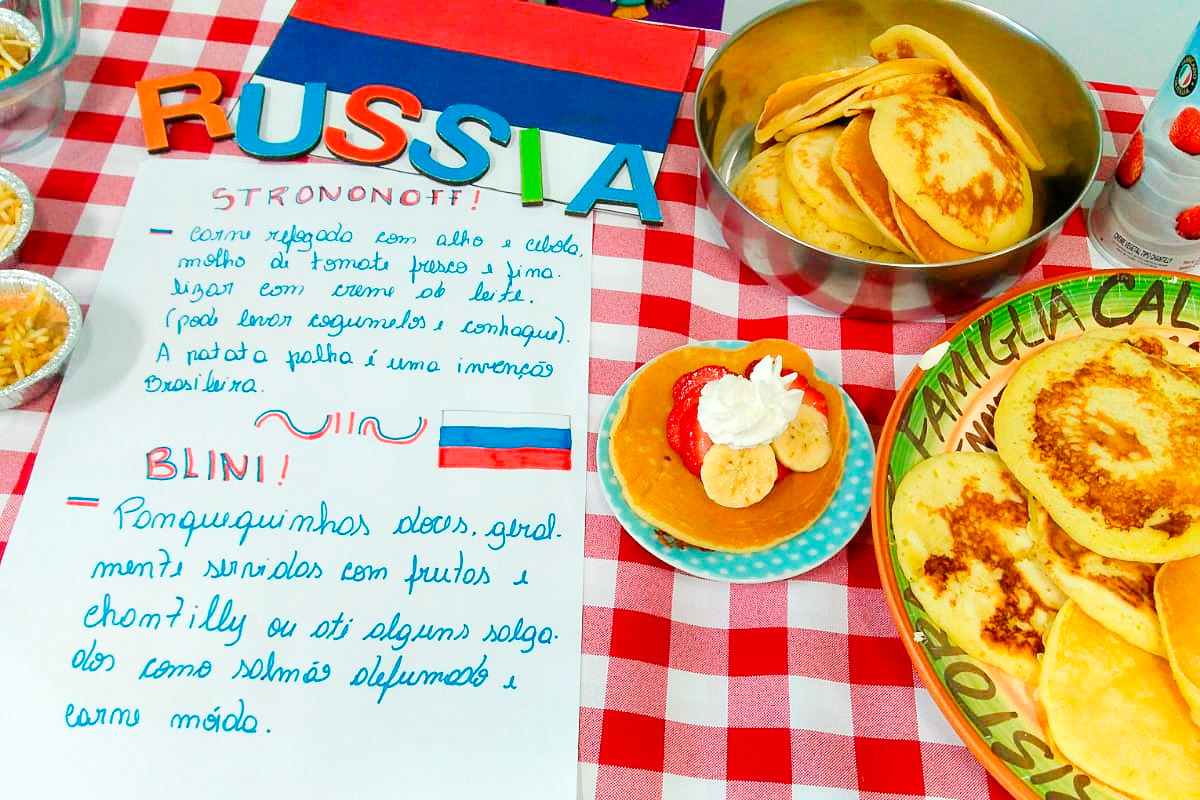 RUSSIA
STRONONOFF!
- carne refogada com alho e cebola,
molho de tomate fresco e fina.
lizar com creme de leite.
(pode levar cogumelos e conhaque).
A patata palha é uma invenção
Brasileira.
BLINI!
- Panquequinhas doces, geral-
mente servidas com frutas e
chantilly ou até alguns salga-
dos como salmão defumado e
carne moída.
FAMIGLIA CAL
CREME VEGETAL TIPO CHANTILLY